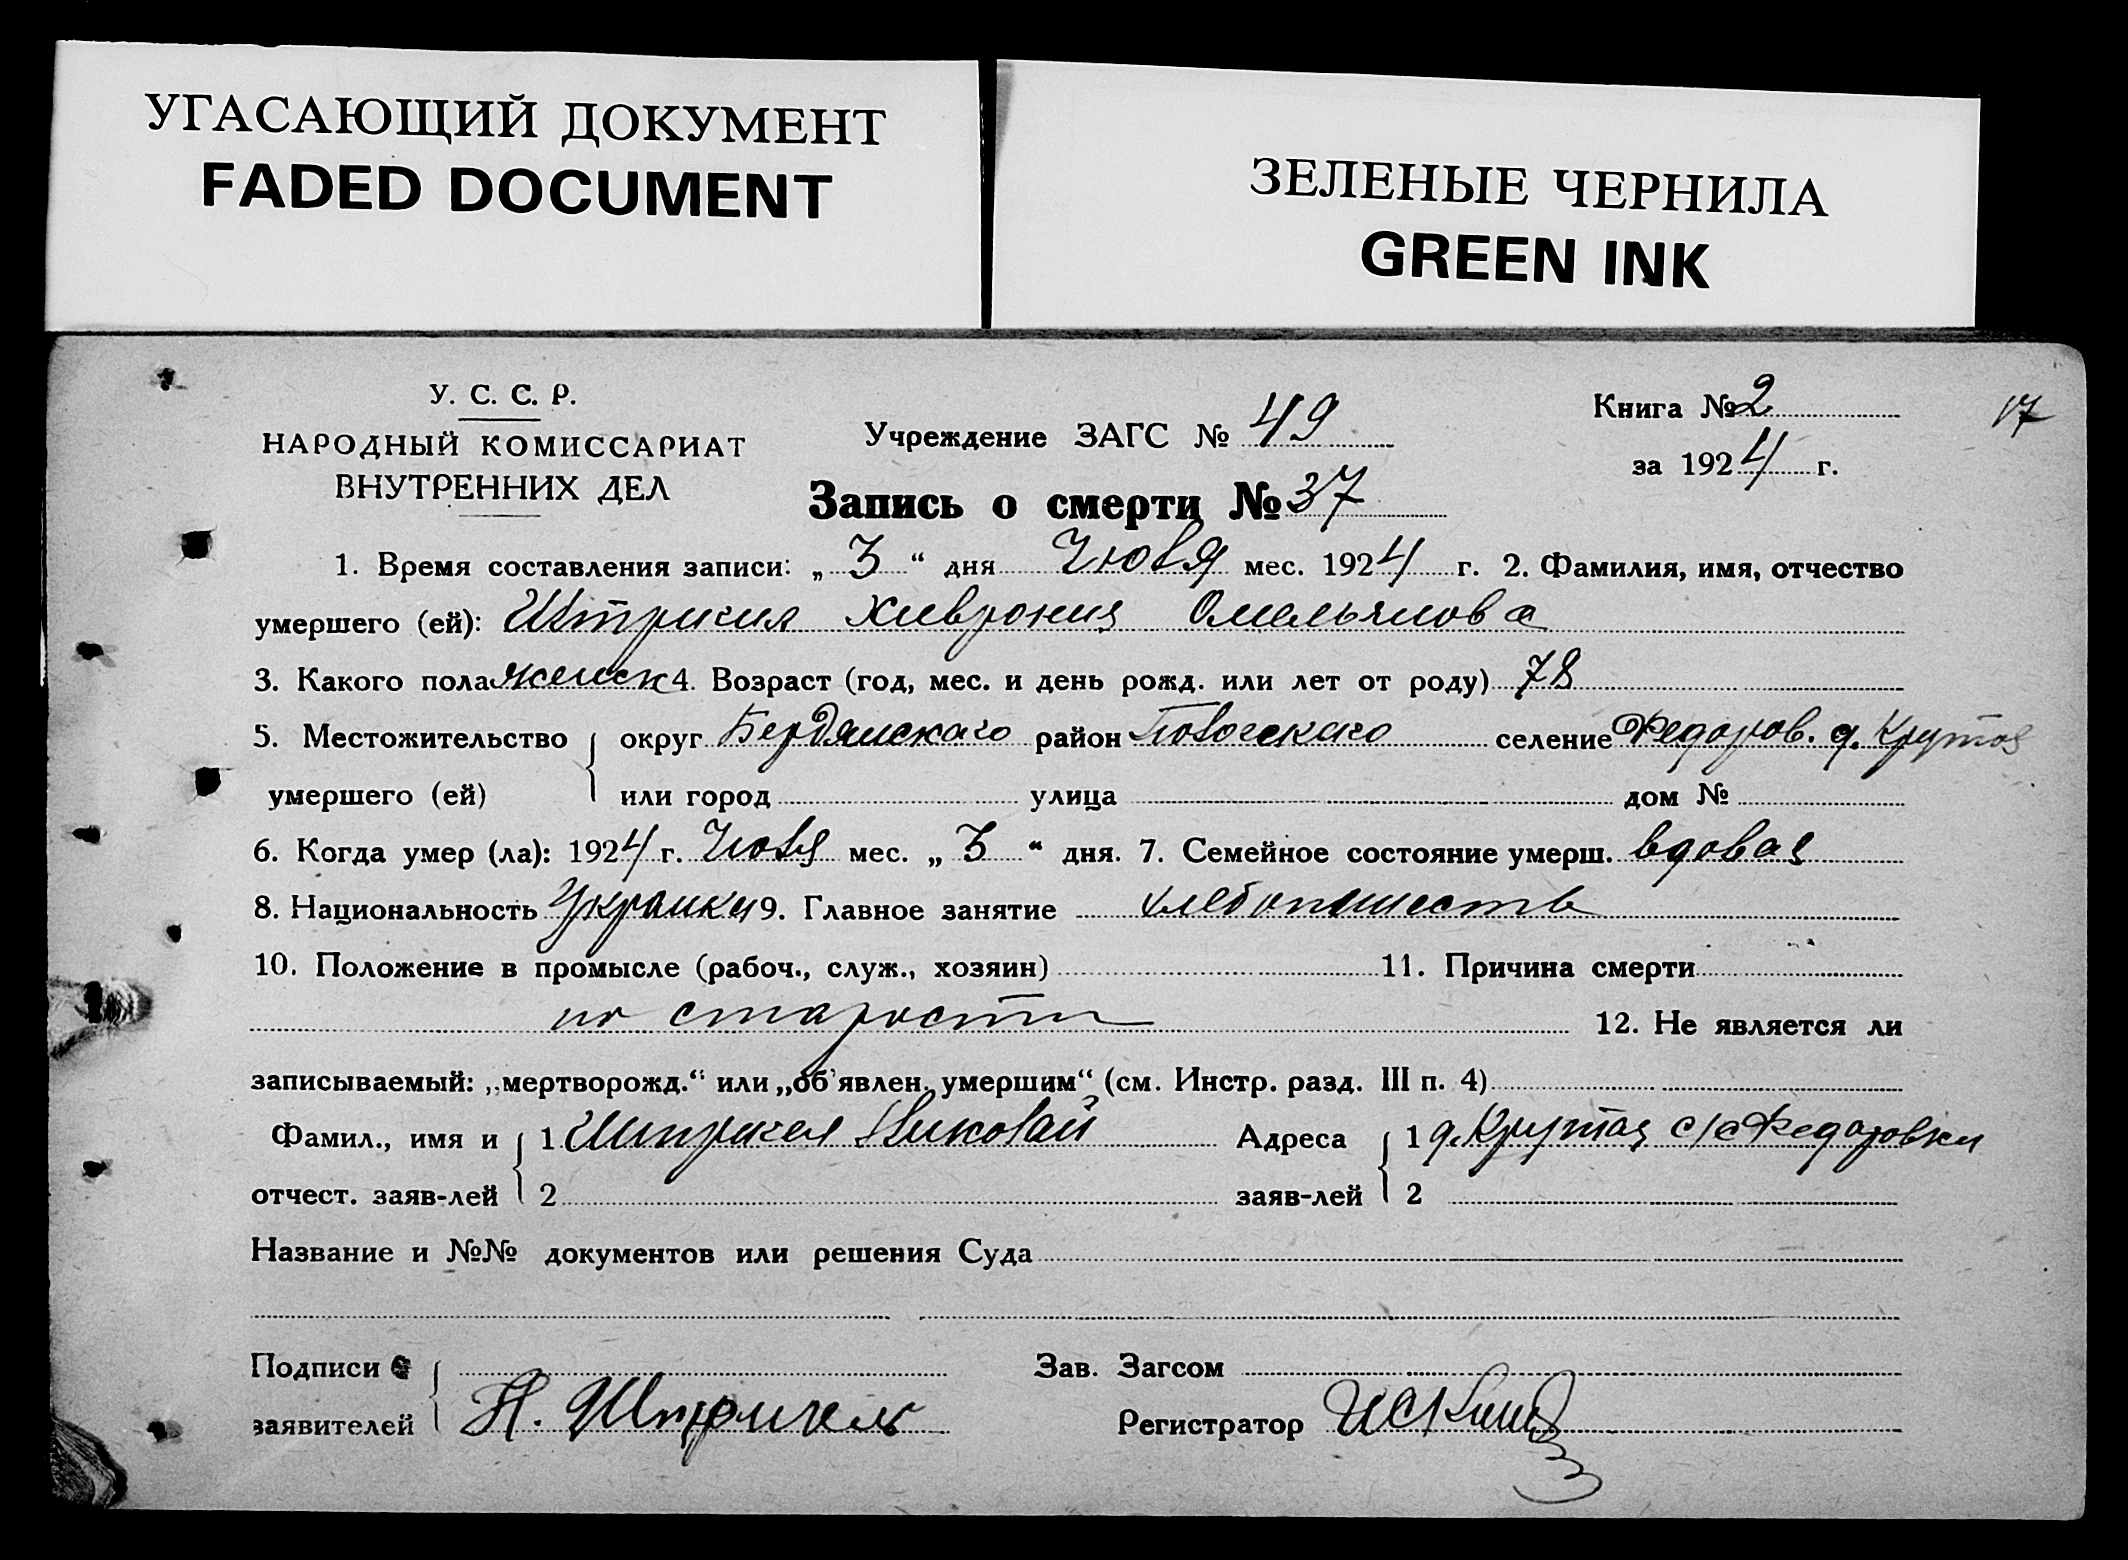 УГАСАЮЩИЙ ДОКУМЕНТ
FADED DOCUMENT
ЗЕЛЕНЫЕ ЧЕРНИЛА
GREEN INK
У. С. С. Р.
НАРОДНЫЙ КОМИССАРИАТ
ВНУТРЕННИХ ДЕЛ
Учреждение ЗАГС № 49
Книга № 2
17
за 1924 г.
Запись о смерти № 37
1. Время составления записи: „ 3 “ дня Июля мес. 1924 г. 2. Фамилия, имя, отчество
умершего (ей): Хиврония Омельянова
3. Какого пола женск 4. Возраст (год, мес. и день рожд. или лет от роду) 78
5. Местожительство округ Бердянского район селение Федоров. д. Крутоя
умершего (ей) или город улица дом №
6. Когда умер (ла): 1924 г. Июля мес. „ 3 “ дня. 7. Семейное состояние умерш. вдовая
8. Национальность 9. Главное занятие хлебопашеств
10. Положение в промысле (рабоч., служ., хозяин) 11. Причина смерти
по старости
12. Не является ли
записываемый: „мертворожд.“ или „об’явлен. умершим“ (см. Инстр. разд. III п. 4)
Фамил., имя и 1 Николай Адреса 1 д. Крутая с/с Федоровки
отчест. заяв-лей 2 заяв-лей 2
Название и №№ документов или решения Суда
Подписи Зав. Загсом
заявителей Н. Регистратор